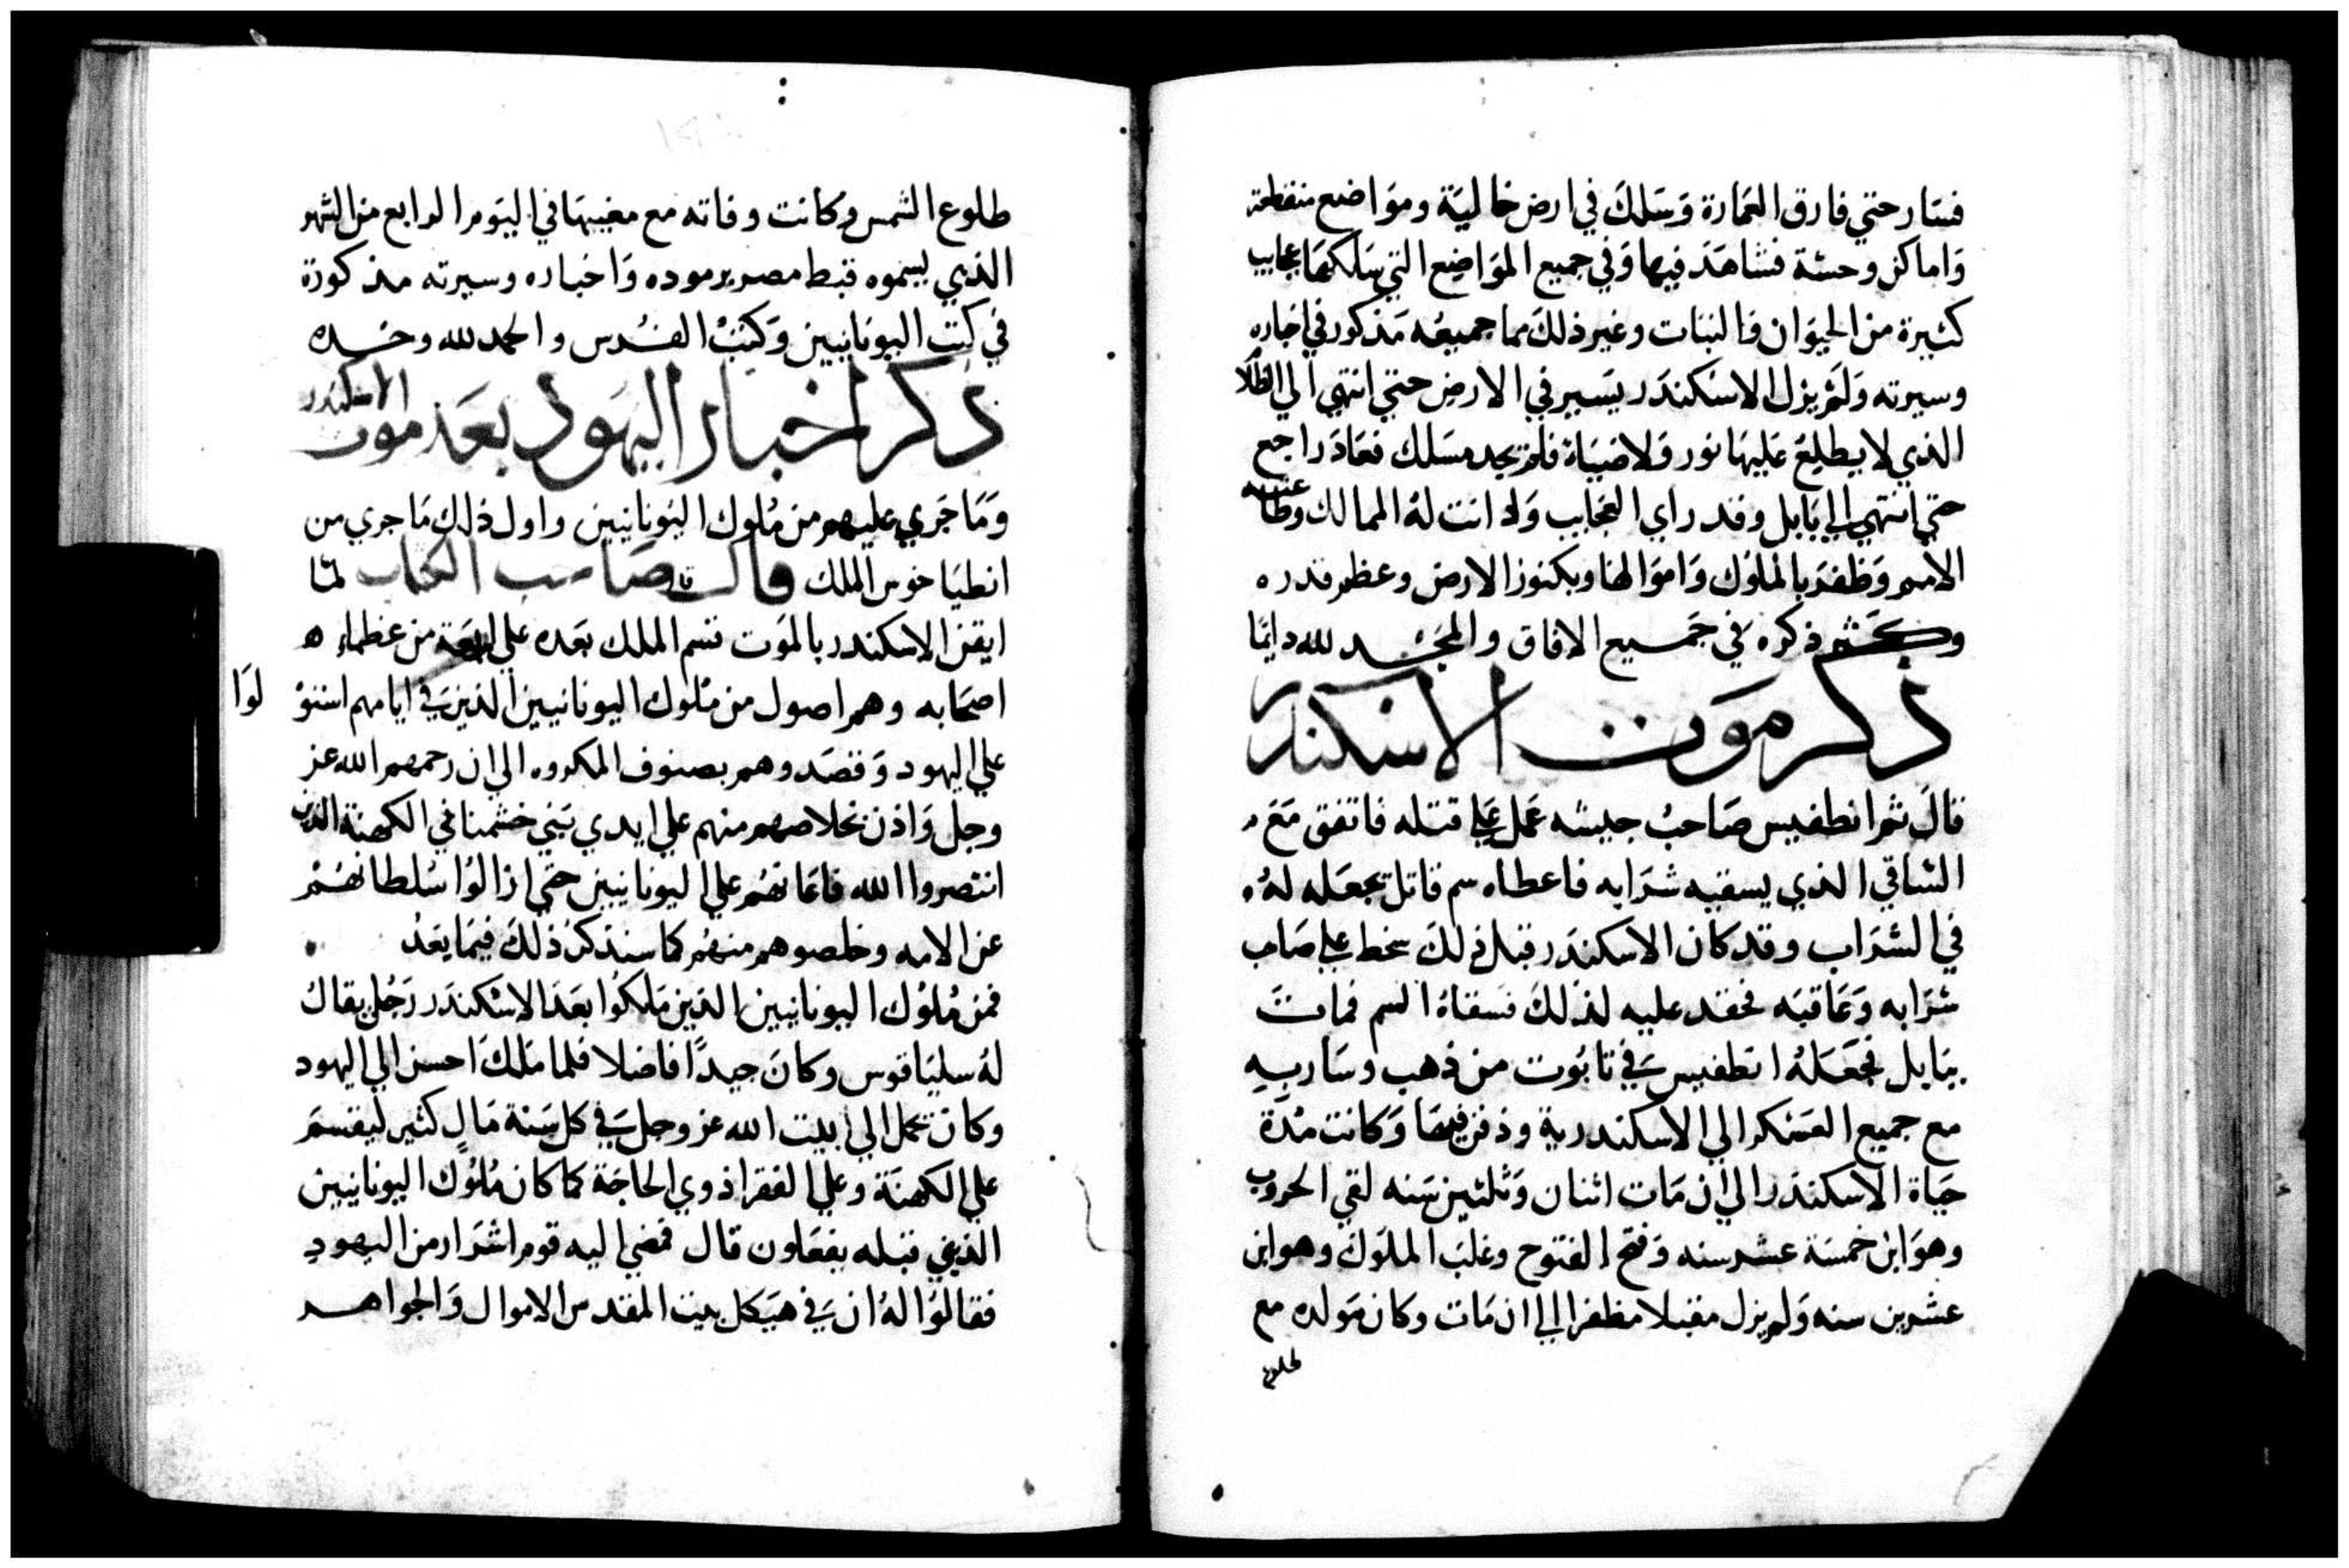 فسار حتي فارق العمارة وسلك في ارض خالية ومواضع منقطعة
واماكن وحشة فشاهد فيها وفي جميع المواضع التي سلكها عجايب
كثيرة من الحيوان والنبات وغير ذلك مما جميعه مذكور في اخباره
وسيرته ولم يزل الاسكندر يسير في الارض حتي انتهي الي الظلام
الذي لا يطلع عليها نور ولا ضياة فلم يجد مسلك فعاد راجع
حتي انتهي الي بابل وقد راي العجايب وادانت له الممالك وطاعته
الامم وظفر بالملوك واموالها وبكنوز الارض وعظم قدره
وكثر ذكره في جميع الافاق والمجد لله دايما
ذكر موت الاسكندر
قال ثم انطفيس صاحب جيشه عمل علي قتله فاتفق مع
الساقي الذي يسقيه شرابه فاعطاه سم قاتل تجعله له
في الشراب وقد كان الاسكندر قبل ذلك سخط علي صاحب
شرابه وعاقبه فحقد عليه لذلك فسقاه السم فمات
ببابل فجعله انطفيس في تابوت من ذهب وسار به
مع جميع العسكر الي الاسكندرية ودفن فيها وكانت مدة
حياة الاسكندر الي ان مات اثنان وثلثين سنه لقي الحروب
وهو ابن خمسة عشر سنه وفتح الفتوح وغلب الملوك وهو ابن
عشرين سنه ولم يزل مقبلا مظفرا الي ان مات وكان مولده مع
طلوع
طلوع الشمس وكانت وفاته مع مغيبها في اليوم الرابع من الشهر
الذي يسموه قبط مصر برموده واخباره وسيرته مذكورة
في كتب اليونانيين وكتب القدس والحمد لله وحده
ذكر اخبار اليهود بعد موت الاسكندر
وما جري عليهم من ملوك اليونانيين واول ذلك ما جري من
انطياخوس الملك قال صاحب الكتاب لما
ايقن الاسكندر بالموت قسم الملك بعده علي اربعة من عظماء
اصحابه وهم اصول من ملوك اليونانيين الذين في ايامهم استو
لوا
علي اليهود وقصدوهم بصنوف المكروه الي ان رحمهم الله عز
وجل واذن بخلاصهم منهم علي ايدي بني خشمناي الكهنة الذين
انتصروا الله فاعانهم علي اليونانيين حتي ازالوا سلطانهم
عن الامه وخلصوهم منهم كما سنذكر ذلك فيما بعد
فمن ملوك اليونانيين الذين ملكوا بعد الاسكندر رجل يقال
له سلياقوس وكان جيدا فاضلا فلما ملك احسن الي اليهود
وكان تحمل الي بيت الله عز وجل في كل سنة مال كثير ليقسم
علي الكهنة وعلي الفقرا ذوي الحاجة كما كان ملوك اليونانيين
الذين قبله يفعلون قال فمضي اليه قوم اشرار من اليهود
فقالوا له ان في هيكل بيت المقدس الاموال والجواهر